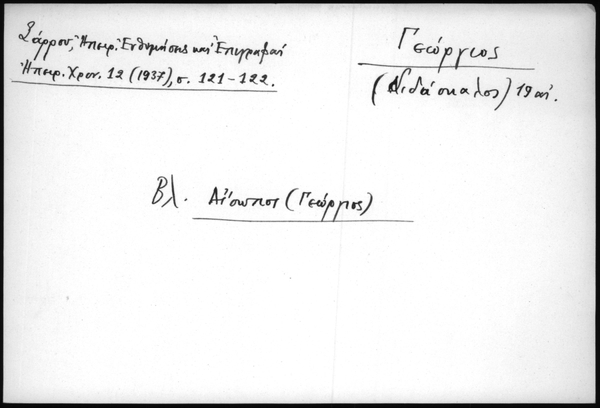 Σάρρου, Ἠπειρ. Ἐνθυμήσεις καὶ Ἐπιγραφαὶ
Ἠπειρ. Χρον. 12 (1937), σ. 121-122.
Γεώργιος
(Διδάσκαλος) 19 αἰ.
Βλ. Αἴσωπος (Γεώργιος)